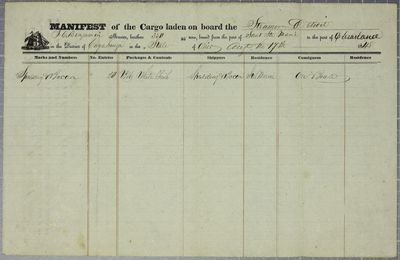 MANIFEST of the Cargo laden on board the Steamer Detroit
Master, burthen 350 as now, bound from the port of Saut Ste Marie to the port of Cleaveland
in the District of Cuyahoga in the State of Ohio Augt the 17th
Marks and Numbers No. Entries Packages & Contents Shippers Residence Consignees Residence
Spalding & Bacon White Fish Spalding & Bacon Ste Marie On Board